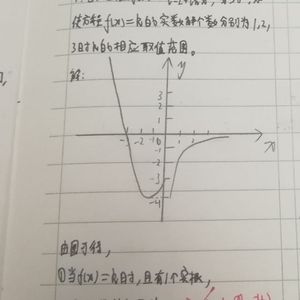 使方程f(x)=k的实数解个数分别为1,2,
3时k的相应取值范围。
解:
y
3
2
1
-3 -2 -1 0
x
-1
-2
-3
-4
由图可得,
①当f(x)=k时,且有1个实根,